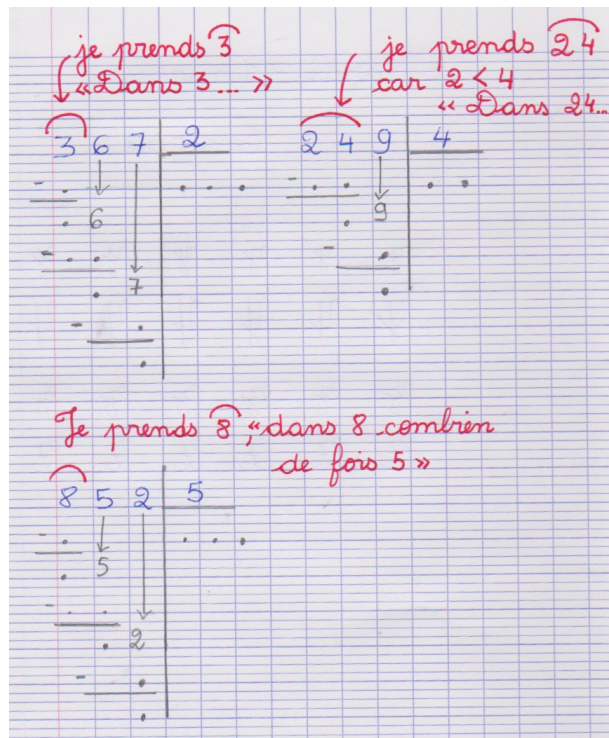 je prends 3
« Dans 3... »
3 6 7 2
- . . . .
. 6
- . .
. 7
- .
.
je prends 24
car 2 < 4
« Dans 24...
2 4 9 4
- . . . .
. 9
- .
.
Je prends 8, « dans 8 combien
de fois 5 »
8 5 2 5
- . . . .
. 5
- . .
. 2
- .
.